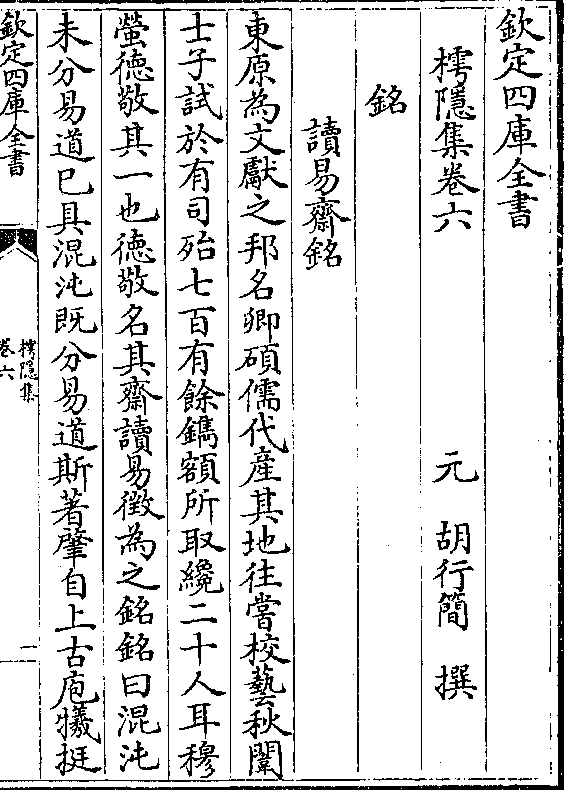 欽定四庫全書
樗隱集卷六
元 胡行簡 撰
銘
讀易齋銘
東原為文獻之邦名卿碩儒代產其地往嘗校藝秋闈
士子試於有司殆七百有餘鐫額所取纔二十人耳穆
螢德敬其一也德敬名其齋讀易徵為之銘銘曰混沌
未分易道已具混沌既分易道斯著肇自上古庖犧挺
欽定四庫全書
樗隱集
卷六
一